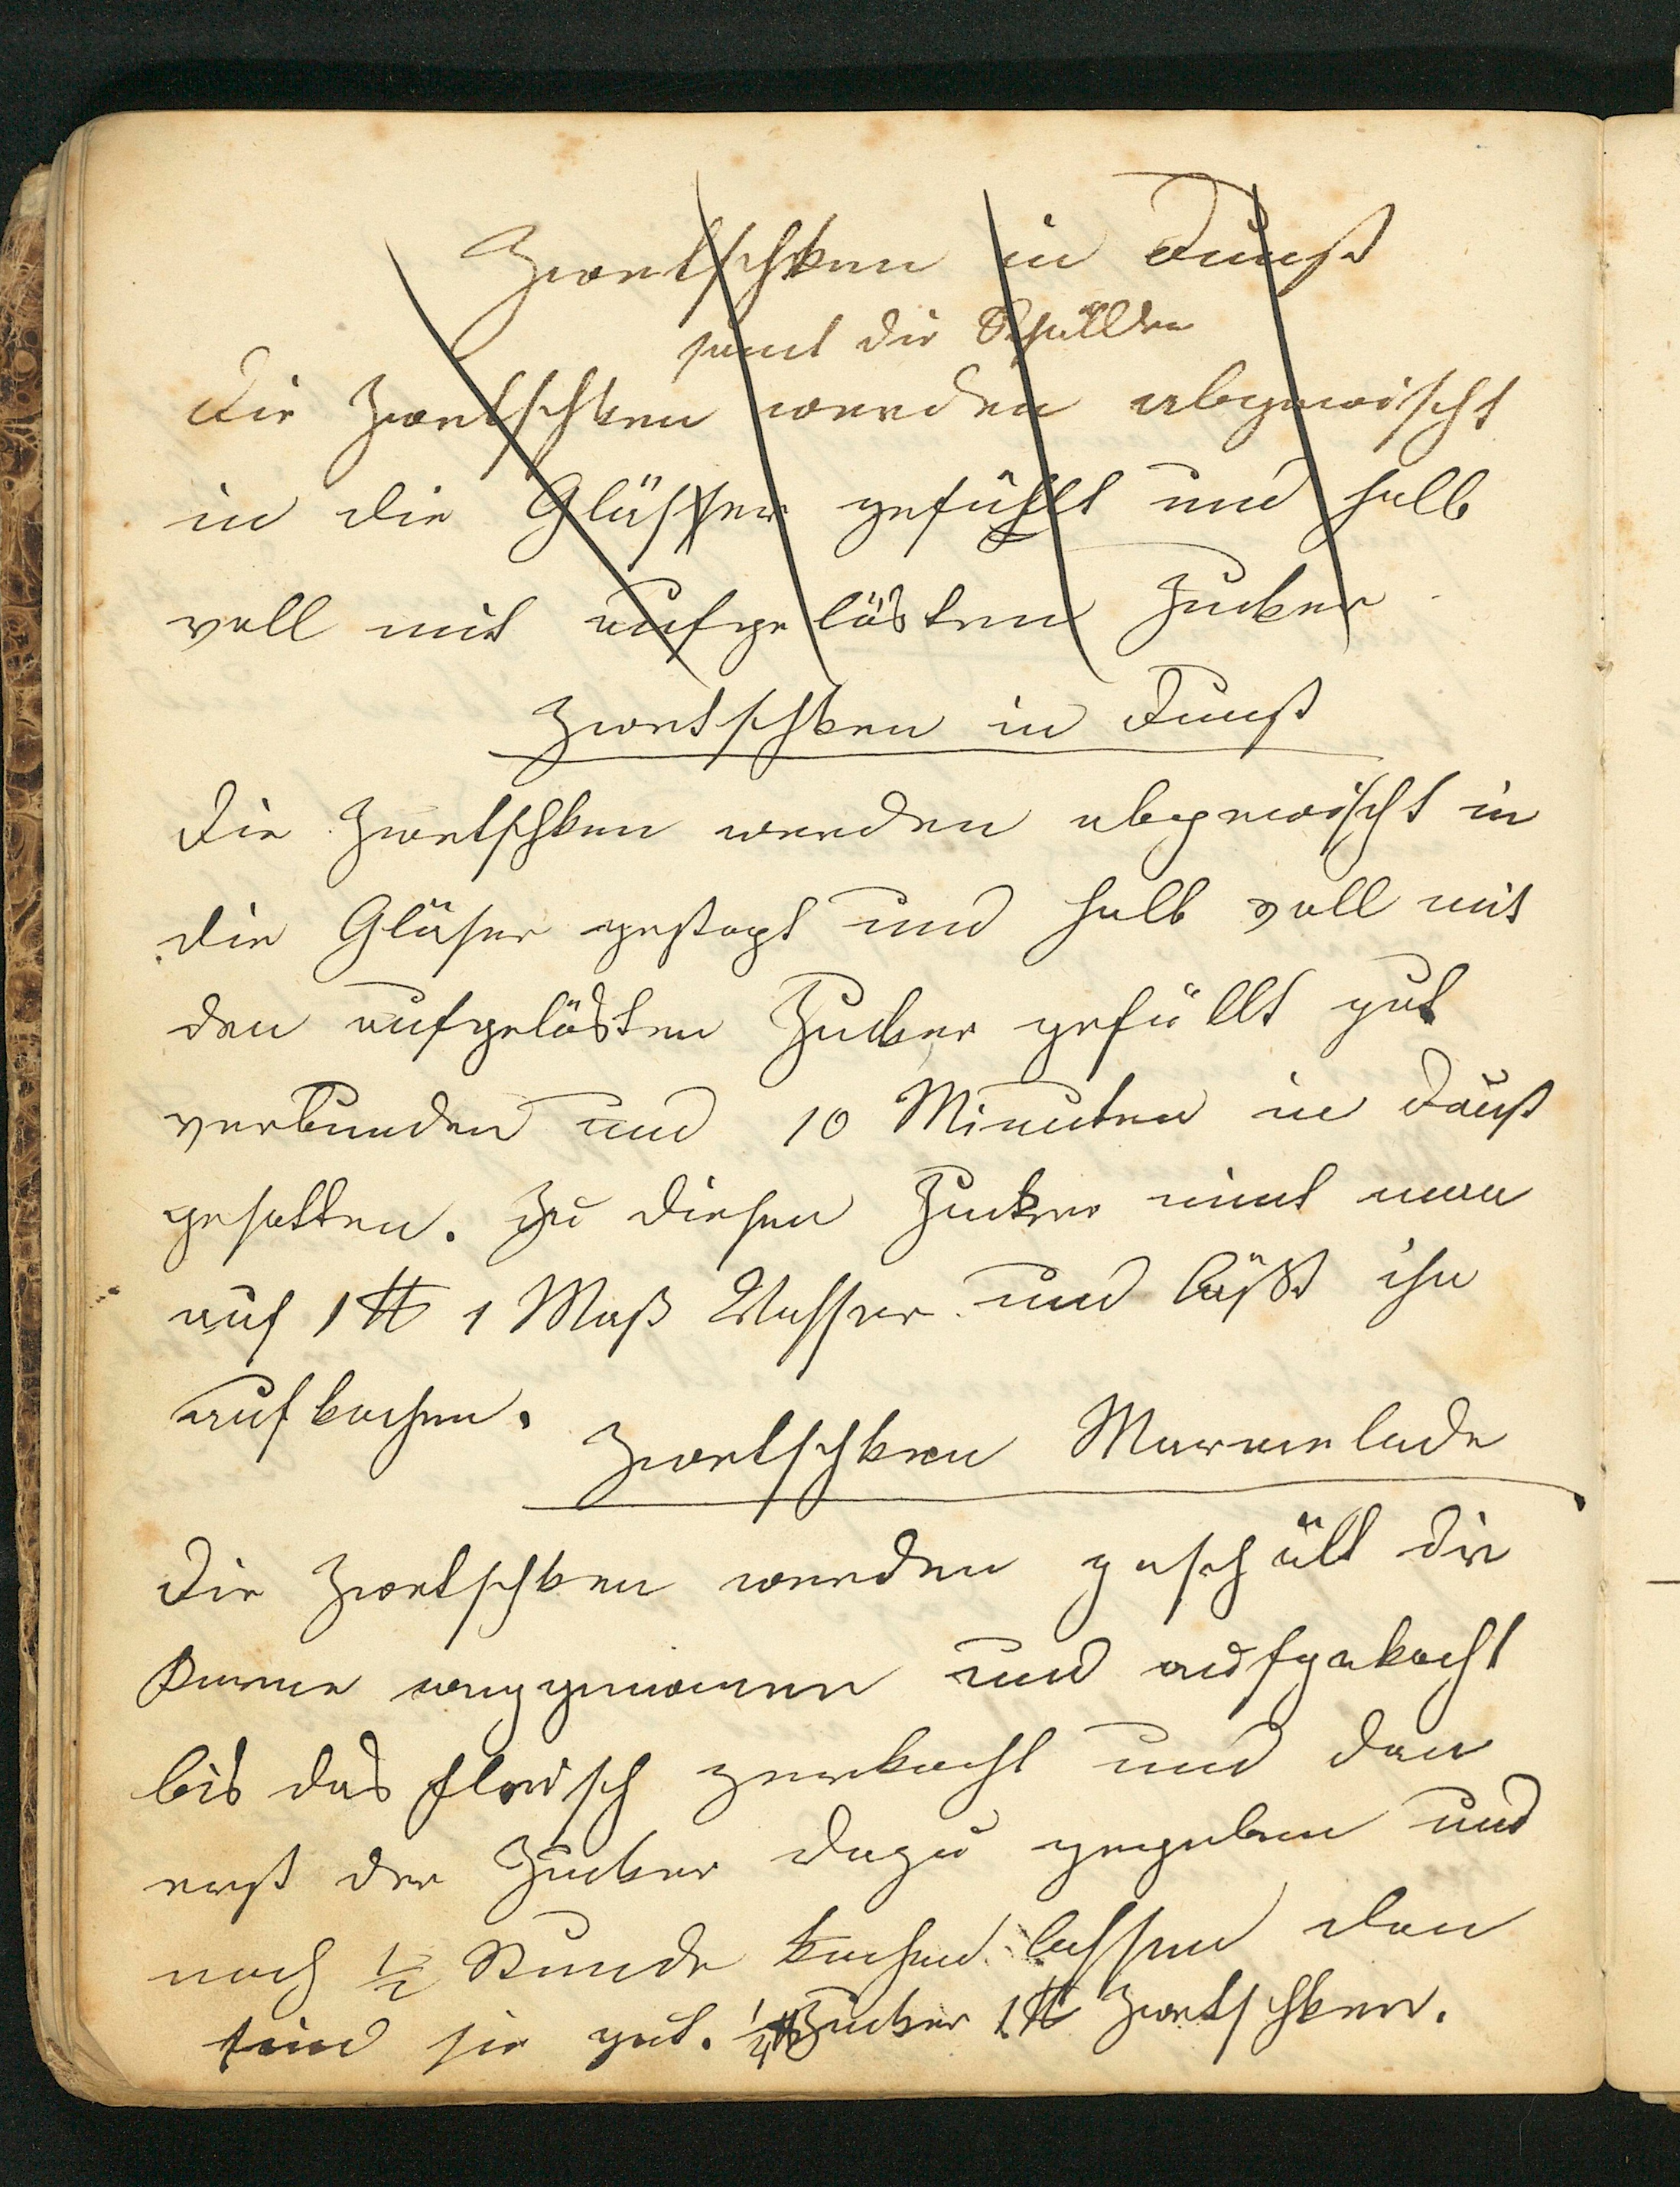 Zwetschken in Dunst
samt die Schällen
Die Zwetschken werden abgewischt
in die Gläser gefühlt und halb
voll mit aufgelösten Zucker
Zwetschken in Dunst
Die Zwetschken werden abgewischt in
die Gläser gestopt und halb voll mit
den aufgelösten Zucker gefüllt gut
verbunden und 10 Minuten in Dunst
gesotten. Zu diesen Zucker nimt man
auf 1 ℔ 1 Maß Wasser und läßt ihn
aufkochen.
Zwetschken Marmelade
Die Zwetschken werden geschält die
Kerne weggenomen und aufgekocht
bis das fleisch zerkocht und dan
erst der Zucker dazu gegeben und
noch ½ Stunde kochen lassen dan
sind sie gut. ½ ℔ Zucker 1 ℔ Zwetschken.